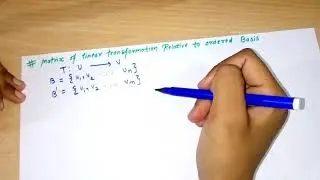 # matrix of linear transformation Relative to ordered Basis
T: U → V
B = {u₁, u₂ ... uₙ}
B' = {v₁, v₂ ... vₘ}